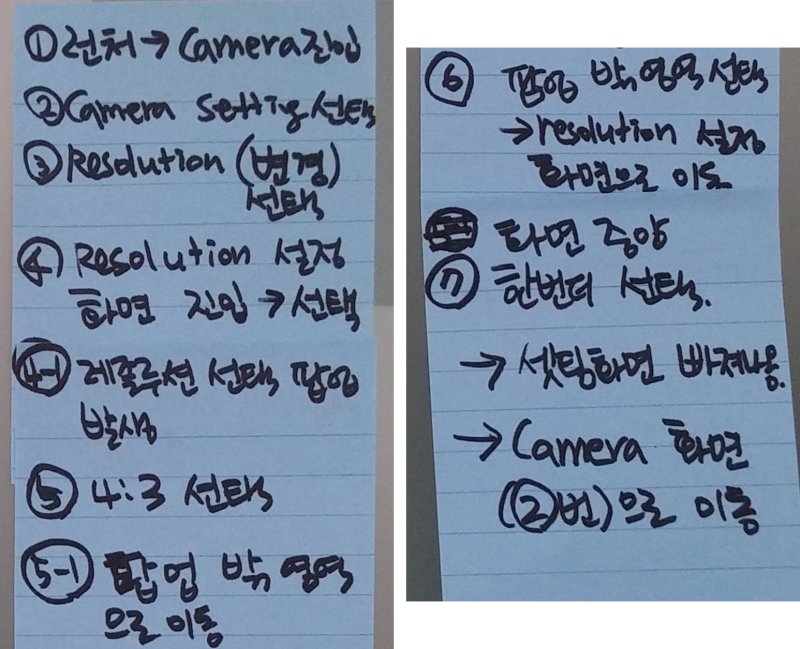 ① 런처 → Camera 진입
② Camera setting 선택
③ Resolution (변경)
선택
④ Resolution 설정
화면 진입 → 선택
④-1 레졸루션 선택 팝업
발생
⑤ 4:3 선택
⑤-1 팝업 밖 영역
으로 이동
⑥ 팝업 밖 영역 선택
→ resolution 설정
화면으로 이동
화면 중앙
⑦ 한번더 선택.
→ 셋팅화면 빠져나옴.
→ Camera 화면
(②번)으로 이동